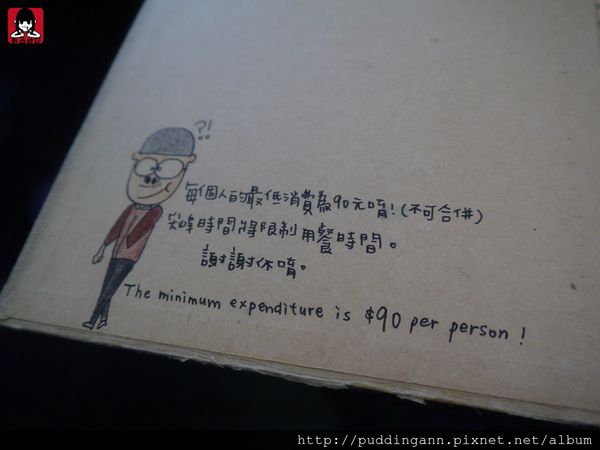 ?!
每個人的最低消費為90元唷!(不可合併)
尖峰時間將限制用餐時間。
謝謝你唷。
The minimum expenditure is $90 per person!
http://puddingann.pixnet.net/album